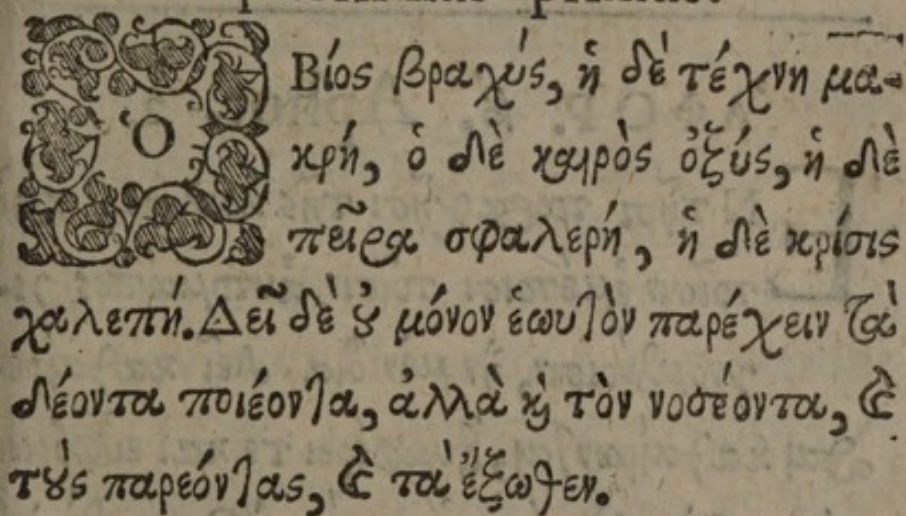 Ὁ Βίος βραχύς, ἡ δὲ τέχνη μα-
κρή, ὁ δὲ καιρὸς ὀξύς, ἡ δὲ
πεῖρα σφαλερή, ἡ δὲ κρίσις
χαλεπή. Δεῖ δὲ ȣ̓ μόνον ἑωυτὸν παρέχειν τὰ
δέοντα ποιέοντα, ἀλλὰ ϗ τὸν νοσέοντα, ϗ
τȣ̀ς παρεόντας, ϗ τὰ ἔξωθεν.